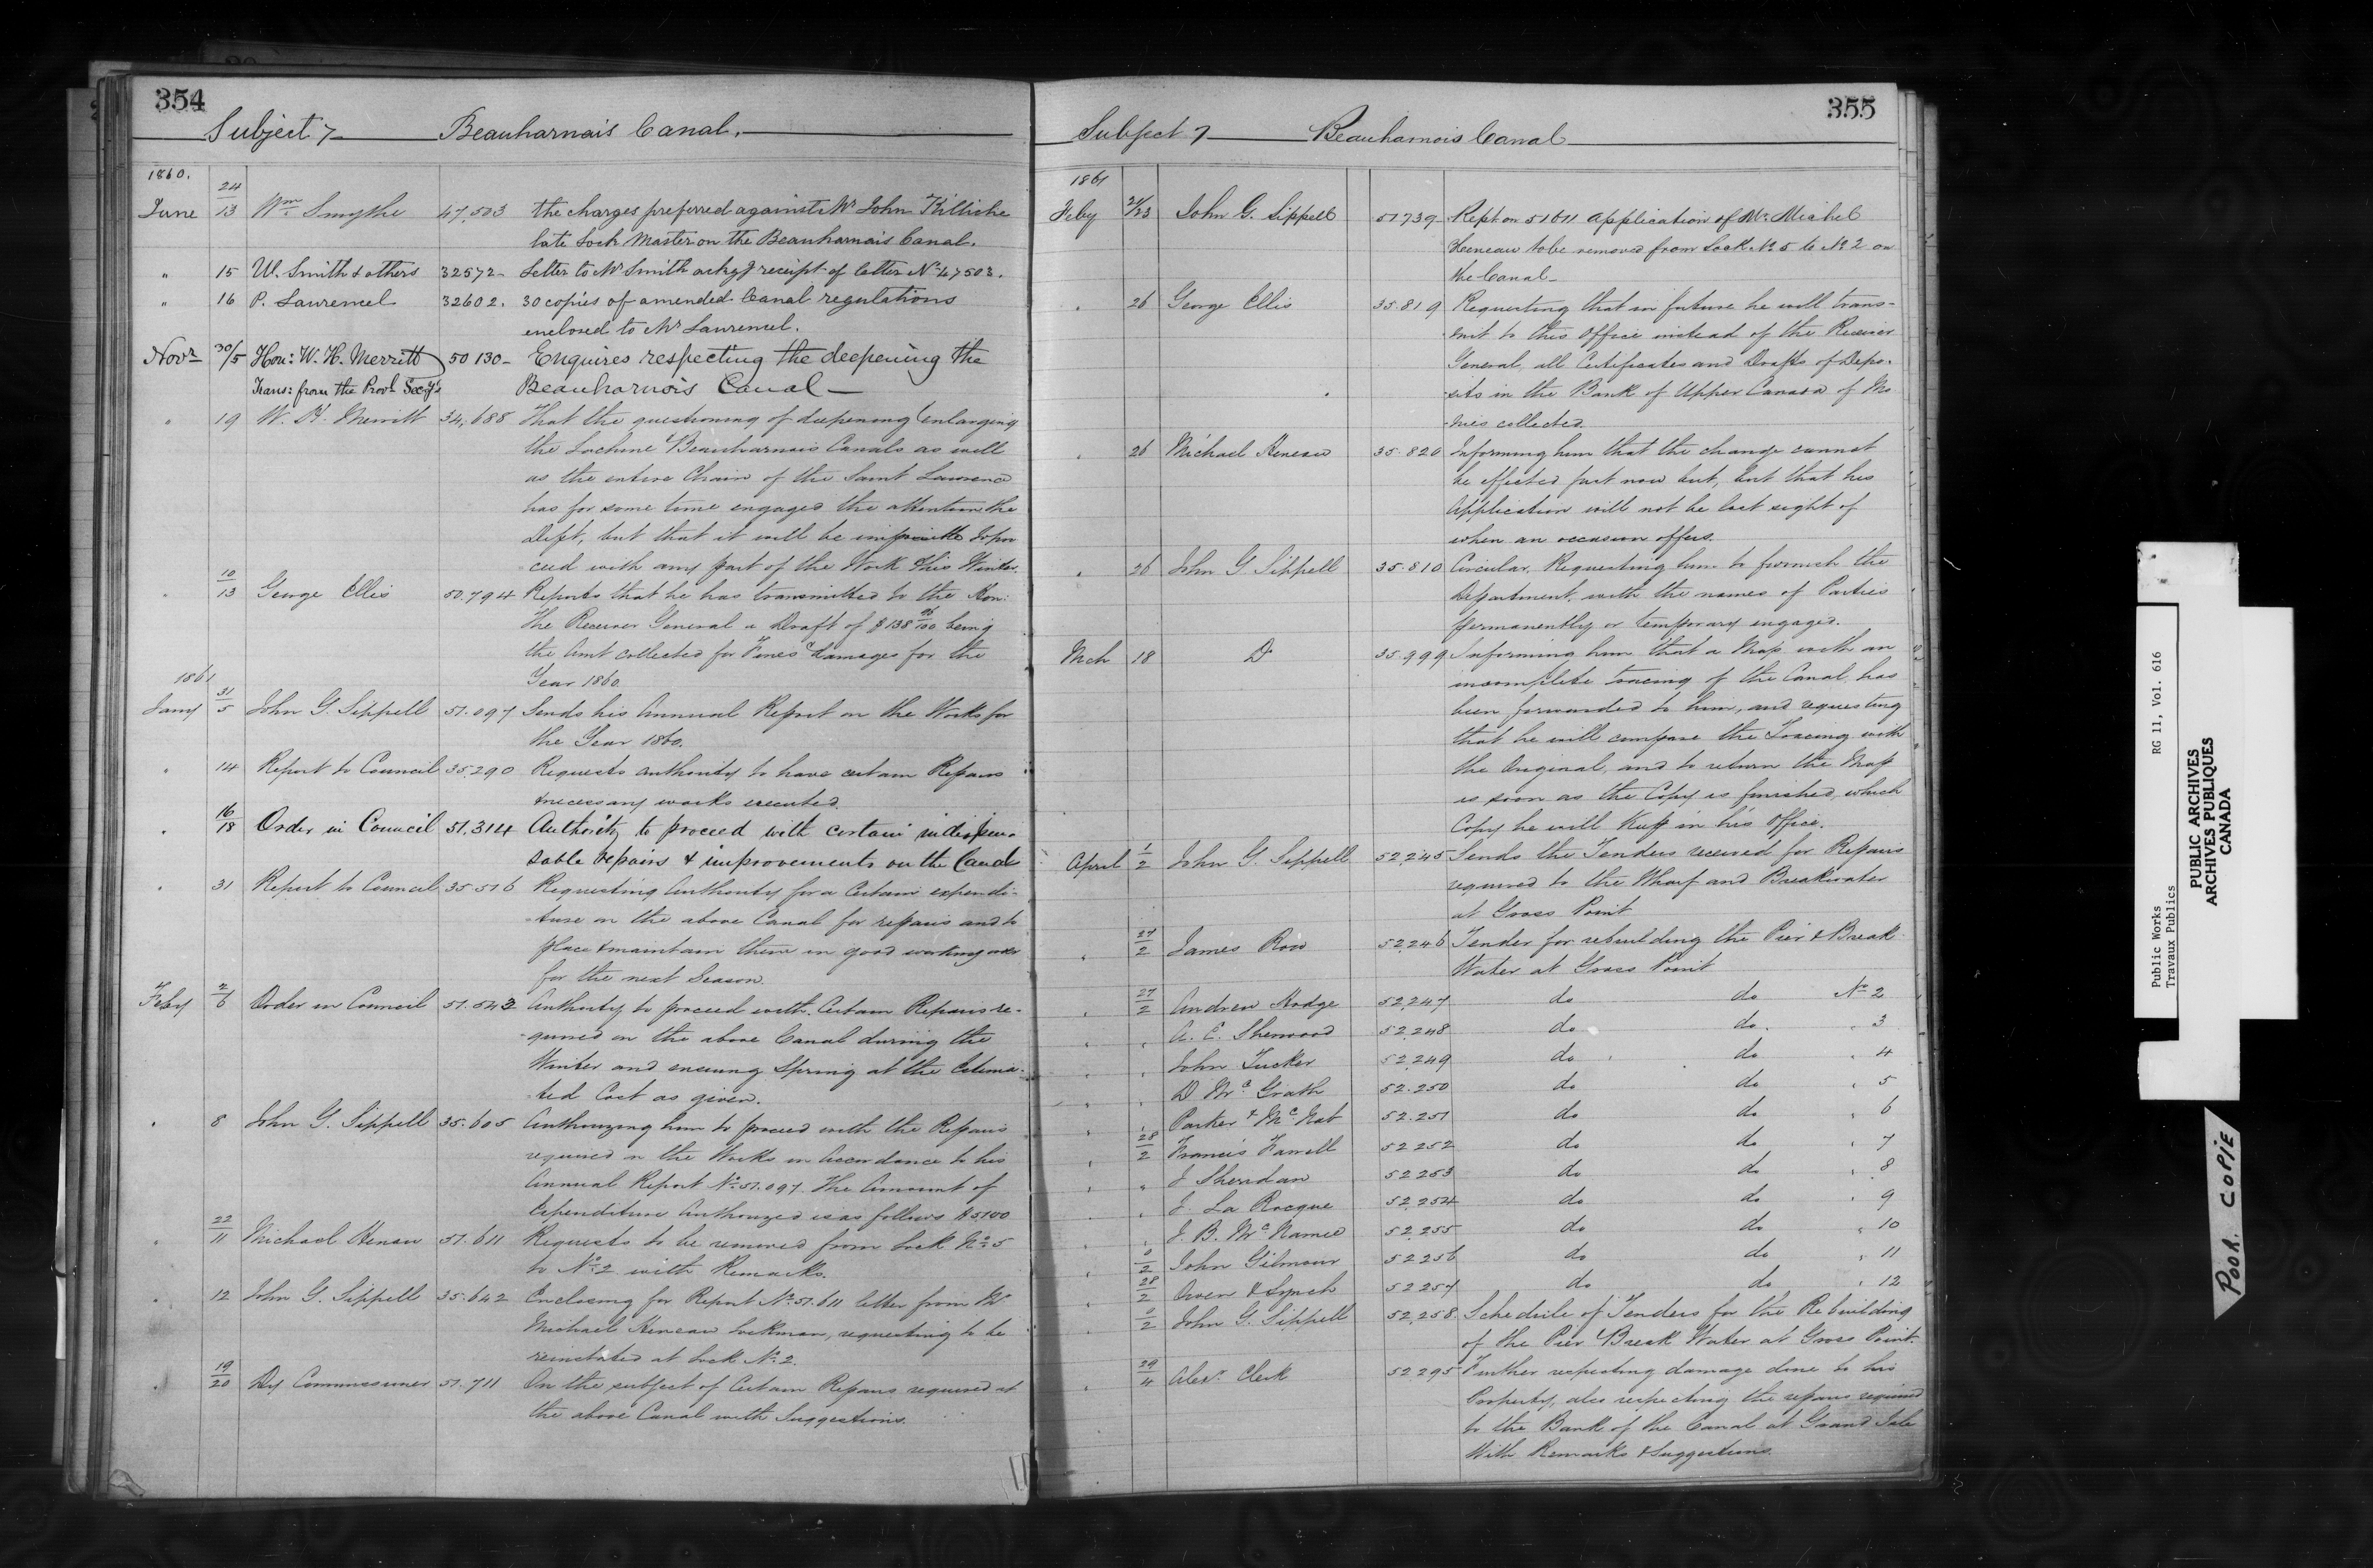 354
Subject 7 Beauharnais Canal.
1860.
June 24/13 Wm Smythe 47,503 the charges preferred against Mr John
late Lock Master on the Beauharnais Canal.
" 15 W. Smith & others 32572 - Letter to Mr Smith ackg receipt of letter No 47503.
" 16 P. Laurencel 32602. 30 copies of amended Canal regulations
enclosed to Mr Laurencel.
Novr 30/5 Hon: W. H. Merritt 50 130 - Enquires respecting the deepening the
Trans: from the Provl Secy's Beauharnois Canal -
" 19 W. H. Merritt 34,688 That the questioning of deepening & enlarging
the Lachine & Beauharnais Canals as well
as the entire Chain of the Saint Lawrence
has for some time engages the attention the
Dept, but that it will be impossible to pro
ceed with any part of the Work this Winter.
" 10/13 George Ellis 50.794 Reports that he has transmitted to the Hon:
the Receiver General a Draft of $138 /100 being
the Amt collected for Fines & damages for the
Year 1860.
1861
Jany 31/5 John G. Sippell 51.097 Sends his Annual Report on the Works for
the Year 1860.
" 14 Report to Council 35,290 Requests authority to have certain Repairs
& necessary works executed.
" 16/18 Order in Council 51,314 Authority to proceed with certain indispen-
sable repairs & improvements on the Canal
" 31 Report to Council 35.516 Requesting Authority for a Certain expendi-
-ture on the above Canal for repairs and to
place & maintain them in good working order
for the next Season.
Feby 2/6 Order in Council 51.542 Authority to proceed with Certain Repairs re-
-quired on the above Canal during the
Winter and ensuing Spring at the Estima-
-ted Cost as given.
" 8 John G. Sippell 35.605 Authorizing him to proceed with the Repairs
required on the Works in accordance to his
Annual Report No 51.097. The Amount of
Expenditure Authorized is as follows $5100
" 22/11 Michael Heneau 51.611 Requests to be removed from Lock No 5
to No 2 with Remarks.
" 12 John G. Sippell 35.642 Enclosing for Report No 51.611 letter from Mr
Michael Heneau Lockman, requesting to be
reinstated at Lock No 2.
" 19/20 Dy Commissioner 51.711 On the subject of Certain Repairs required at
the above Canal with Suggestions.
355
Subject 7 Beauharnois Canal
1861
Feby 21/23 John G. Sippell 51739 - Rept on 51611 application of Mr Michel
Heneau to be removed from Lock No 5 to No 2 on
the Canal -
" 26 George Ellis 35.819 Requesting that in future he will trans-
-mit to this Office instead of the Receiver
General, all Certificates and Drafts of Depo-
-sits in the Bank of Upper Canada of Mo
-nies collected.
" 26 Michael Heneau 35.820 Informing him that the change cannot
be effected just now but, but that his
Application will not be lost sight of
when an occasion offers.
" 26 John G. Sippell 35.810 Circular, Requesting him to furnish the
Department, with the names of Parties
permanently or temporary engaged.
Mch 18 Do 35.999 Informing him that a Map with an
incomplete tracing of the Canal has
been forwarded to him, and requesting
that he will compare the Tracing with
the Original, and to return the Map
as soon as the Copy is finished, which
Copy he will Keep in his Office.
April 1/2 John G. Sippell 52,245 Sends the Tenders received for Repairs
required to the Wharf and Breakwater
at Gross Point
" 27/2 James Row 52,246 Tender for rebuilding the Pier & Break
Water at Gross Point
" 27/2 Andrew Hodge 52,247 do do No 2
" " A. E. Sherwood 52,248 do do " 3
" " John Tucker 52,249 do do " 4
" " D McGrath 52.250 do do " 5
" " Parker & McNab 52.251 do do " 6
" 28/2 Francis Farrell 52252 do do " 7
" " J Sheridan 52253 do do " 8
" " J. La Rocque 52,254 do do " 9
" " J. B. McNamee 52,255 do do " 10
" 0/2 John Gilmour 52256 do do " 11
" 28/2 Owen & Lynch 52257 do do " 12
" 0/2 John G. Sippell 52,258. Schedule of Tenders for the Rebuilding
of the Pier & Break Water at Gross Point.
" 29/4 Alexr Clerk 52,295 Further respecting damage done to his
Property, also respecting the repairs required
to the Bank of the Canal at Grand Isle
With Remarks & Suggestions.
Public Works RG 11, Vol. 616
Travaux Publics
PUBLIC ARCHIVES
ARCHIVES PUBLIQUES
CANADA
POOR COPIE